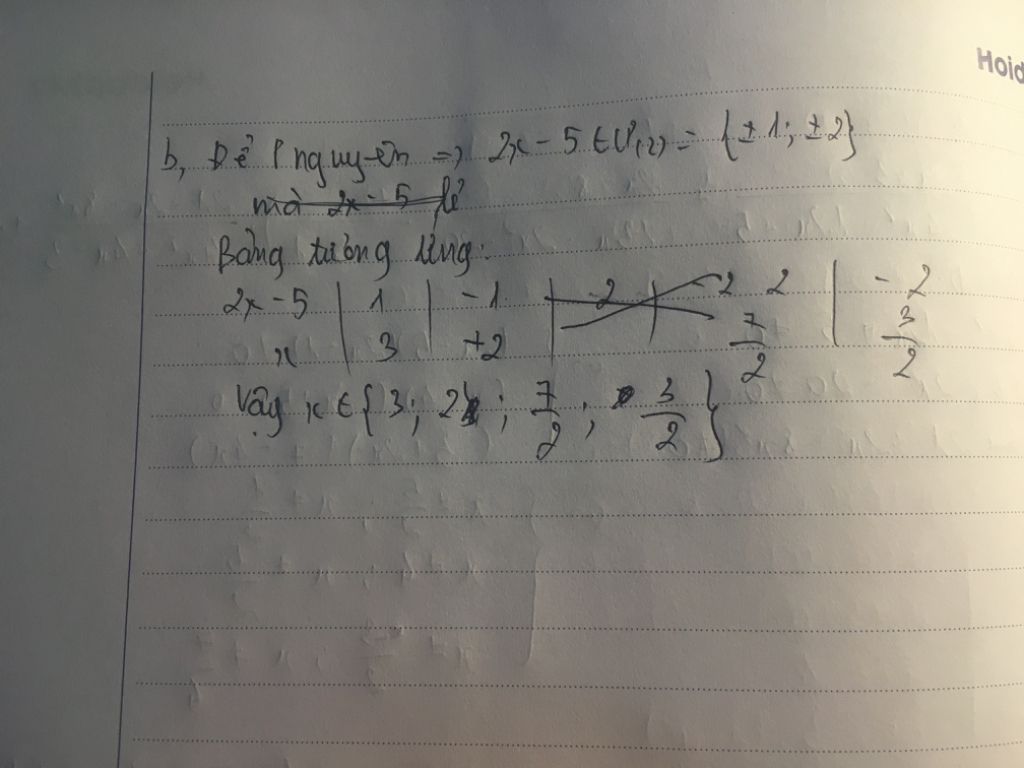 Hoid
b, Để P nguyên => 2x - 5 ∈ Ư(2) = {± 1; ± 2}
mà 2x - 5 lẻ
Bảng tương ứng:
2x - 5 | 1 | - 1 | -2 | 2 2 | - 2
x | 3 | +2 | | 7/2 | 3/2
Vậy x ∈ {3; 2; 7/2; 3/2}